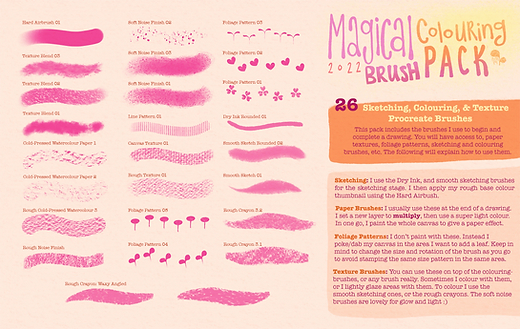 Hard Airbrush 01
Texture Blend 03
Texture Blend 02
Texture Blend 01
Cold-Pressed Watercolour Paper 1
Cold-Pressed Watercolour Paper 2
Rough Cold-Pressed Watercolour 3
Rough Noise Finish
Soft Noise Finish
Soft Noise Finish 03
Soft Noise Finish 01
Line Pattern 01
Canvas Texture 01
Rough Texture 01
Foliage Pattern 05
Foliage Pattern 04
Foliage Pattern 07
Foliage Pattern
Foliage Pattern 01
Dry Ink Rounded 02
Smooth Sketch 02
Smooth Sketch 01
Rough Crayon 3.2
Rough Crayon 3.1
Rough Crayon Waxy Angled
Magical Colouring
2022 BRUSH PACK
26 Sketching, Colouring, & Texture
Procreate Brushes
This pack includes the brushes I use to begin and
complete a drawing. You will have access to, paper
textures, foliage patterns, sketching and colouring
brushes, etc. The following will explain how to use them.
Sketching: I use the Dry Ink, and smooth sketch brushes
for the sketching stage. I then apply my rough base colour
thumbnail using the Hard Airbrush.
Paper Brushes: I usually use these at the end of a drawing.
I set a new layer to multiply, then use a super light colour.
In one go, I paint the whole canvas to give a paper effect.
Foliage Patterns: I don't paint with these. Instead I
poke/dab my canvas in the area I want to add a leaf. Keep in
mind to change the size and rotation of the brush as you go
to avoid stamping the same size pattern in the same area.
Texture Brushes: You can use these on top of the colouring
brushes, or any brush really. Sometimes I colour with them,
or I lightly glaze areas with them. To colour I use the
smooth sketching ones, or the rough crayons. The soft noise
brushes are lovely for glow and light :)